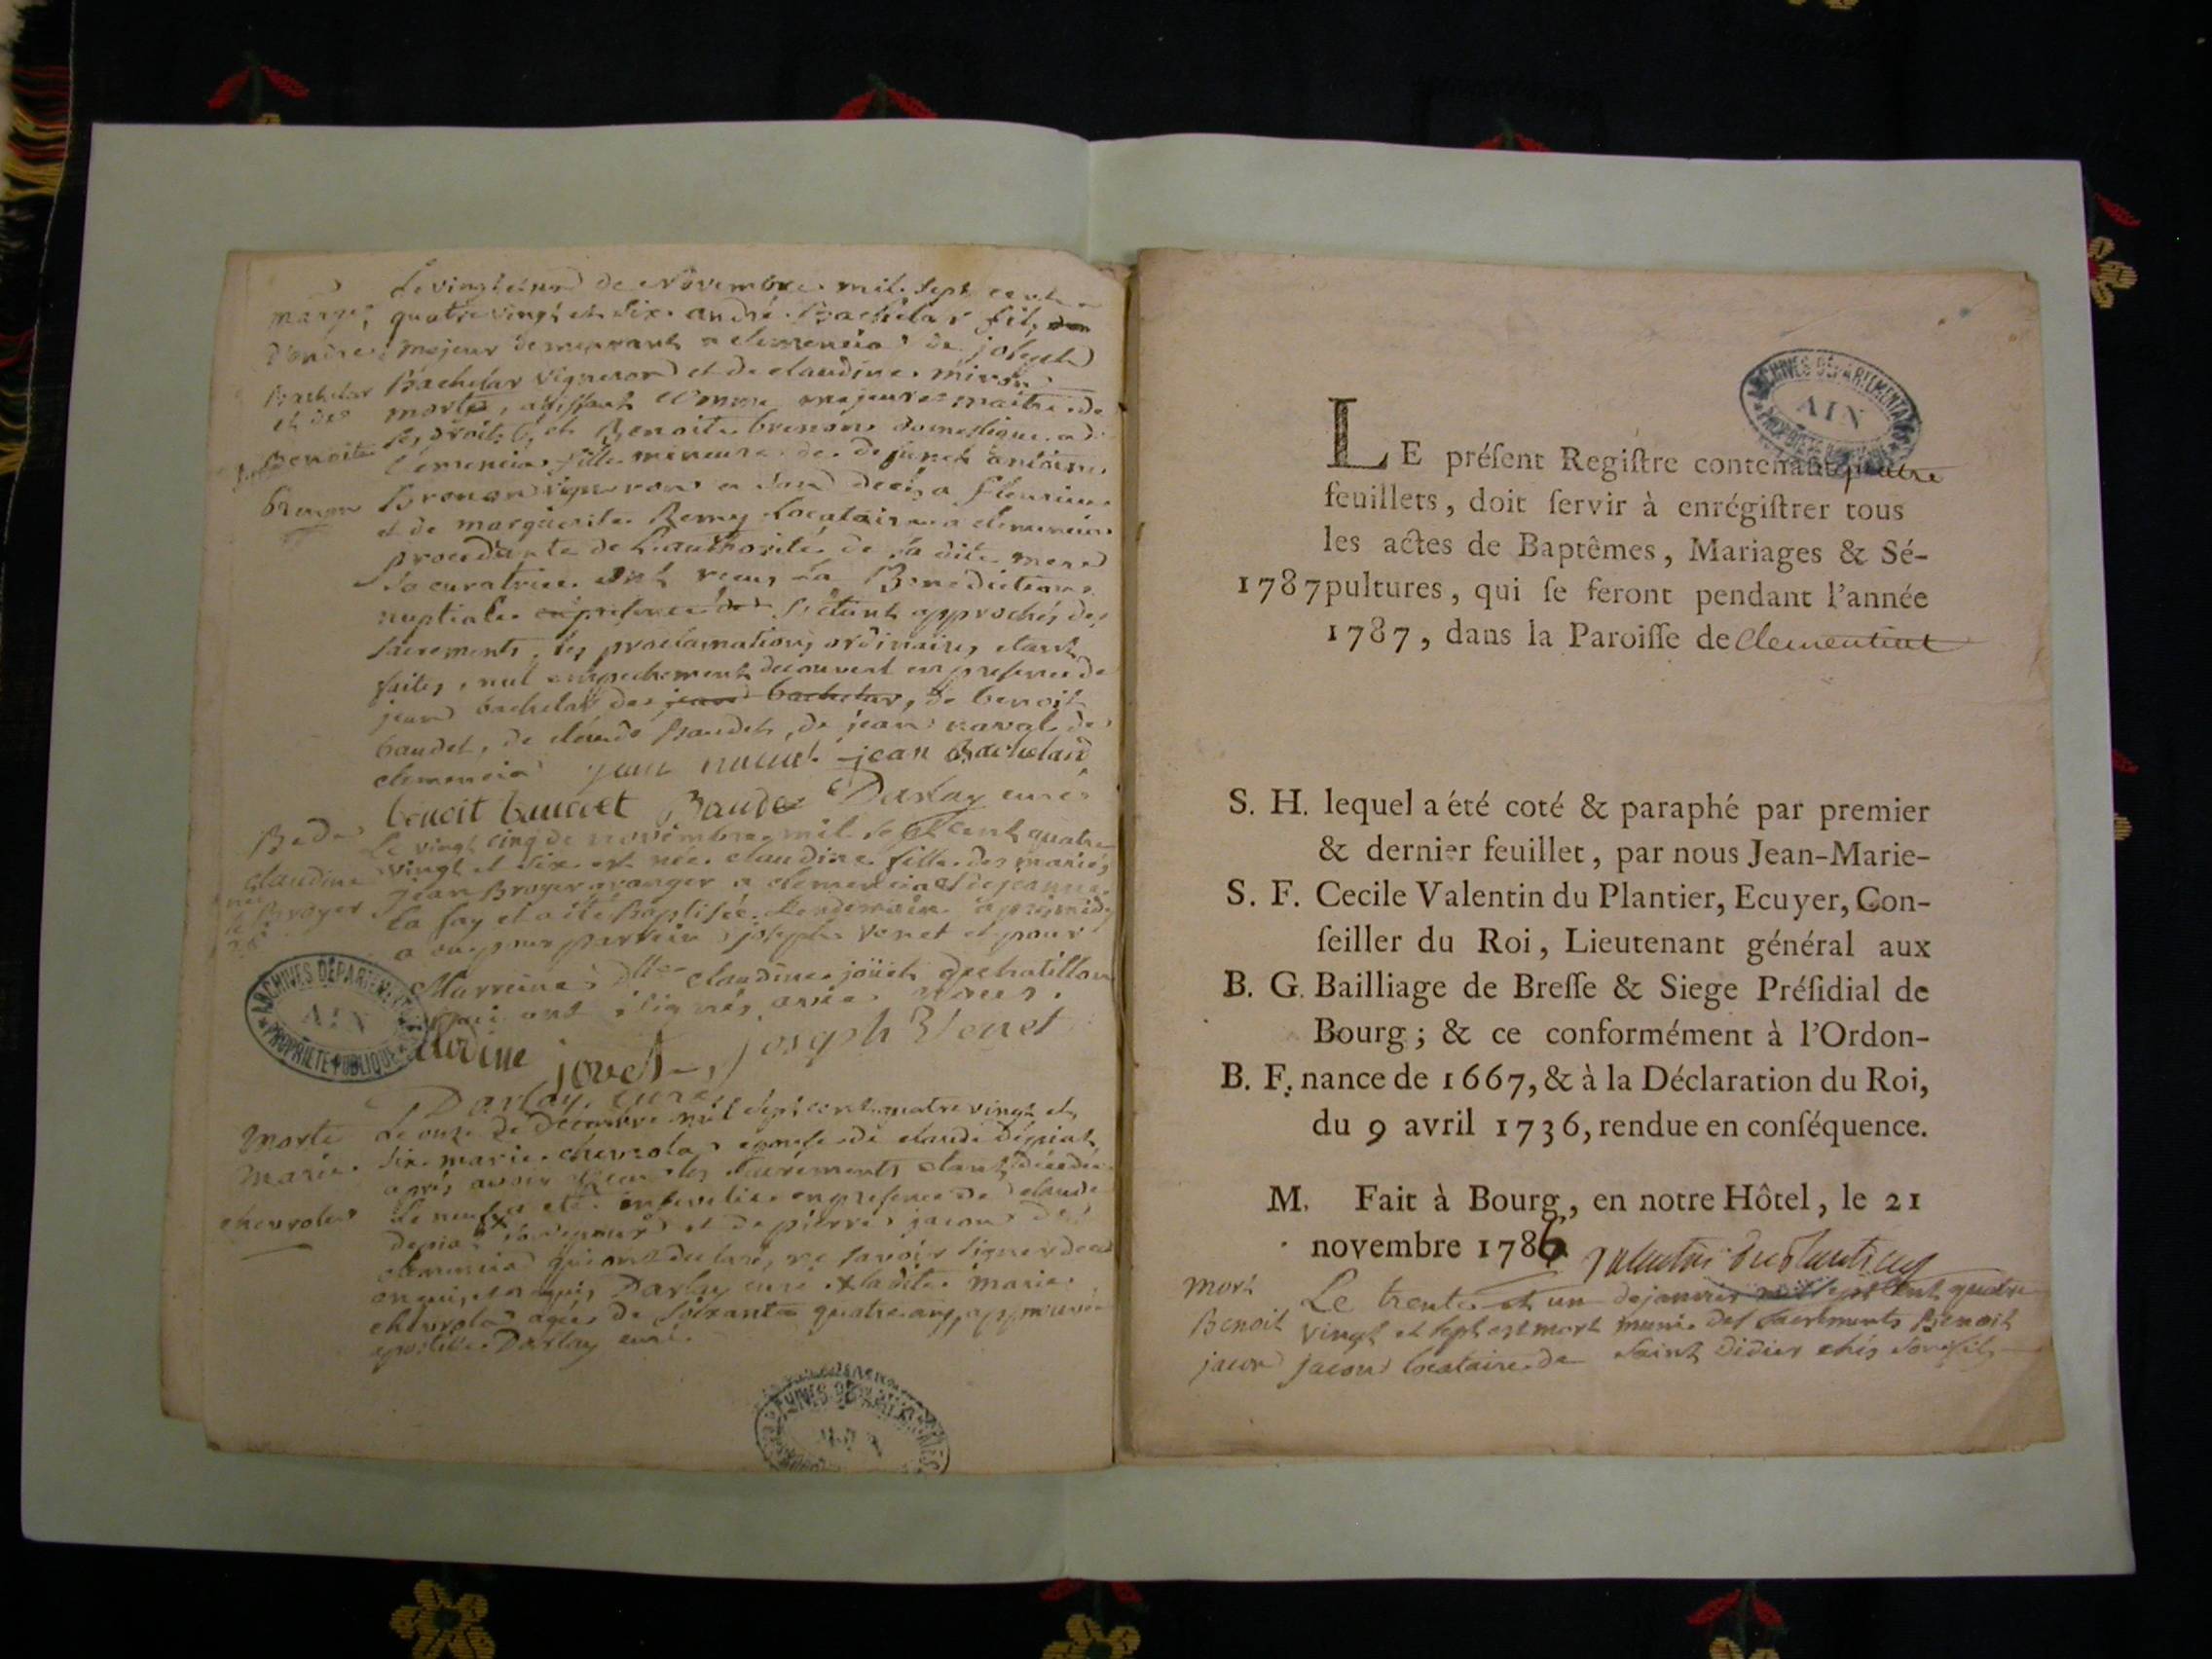 Le vingt et un de Novembre mil sept cent
mariage quatre vingt et six andré Bachelar fils
d'andré majeur demeurant a clemencia de joseph
Bachelar Bachelar vigneron et de claudine
et de morte, agissant comme majeur maitre de
Benoite ses droits, et Benoite brenon domestique a
clemencia fille mineure de defunct antoine
brenon Brenon vigneron a decés a fleurieu
et de marguerite Remy locataire a clemencia
procedante de l'authorité de sa dite mere
sa curatrice ont recus la Benediction
nuptiale en presence de s'étant approchés des
sacrements, les proclamations ordinaires étant
faites, nul empechement decouvert en presence de
jean bachelar de jean bachelar, de benoit
baudet, de claude Baudet, de jean naval de
clemencia jean naval jean Bachelard
benoit baudet Baudet Darlay curé
Bade Le vingt cinq de novembre mil sept cent quatre
claudine vingt et six est née claudine fille des mariés
Broyer jean Broyer granger a clemencia et de jeanne
la fay et a été baptisée lendemain
a eu pour parrein joseph venet et pour
Marreine dlle claudine joüet de chatillon
qui ont signés avec nous.
ARCHIVES DEPARTEMENTALES
AIN
PROPRIETE PUBLIQUE
claudine jouet joseph Venet
Darlay curé
Morte Le onze de Decembre mil sept cent quatre vingt et
Marie six marie chevrola epouse de claude Depiat
après avoir reçu les sacrements étant décédée
chevrola le neuf a eté ensevelie en presence de claude
depia et de pierre jacon de
clemencia qui ont declaré ne savoir signer de ce
enquis et requis Darlay curé x la dite marie
chevrola agée de soixante quatre ans, approuvée
apostille Darlay curé.
ARCHIVES DEPARTEMENTALES
AIN
ARCHIVES DEPARTEMENTALES
AIN
PROPRIETE PUBLIQUE
LE préſent Regiſtre contenant quatre
feuillets, doit ſervir à enrégiſtrer tous
les actes de Baptêmes, Mariages & Sé-
1787 pultures, qui ſe feront pendant l'année
1787, dans la Paroiſſe de Clementiat
S. H. lequel a été coté & paraphé par premier
& dernier feuillet, par nous Jean-Marie-
S. F. Cecile Valentin du Plantier, Ecuyer, Con-
ſeiller du Roi, Lieutenant général aux
B. G. Bailliage de Breſſe & Siege Préſidial de
Bourg ; & ce conformément à l'Ordon-
B. F. nance de 1667, & à la Déclaration du Roi,
du 9 avril 1736, rendue en conſéquence.
M. Fait à Bourg, en notre Hôtel, le 21
novembre 1786 Valentin duplantier
Mort Le trente et un de janvier mil sept cent quatre
Benoit vingt et sept est mort munie des sacrements Benoit
jacon jacon locataire de saint Didier chés son fils